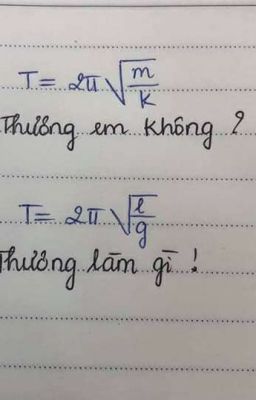 T = 2π √(m/k)
Thương em không ?
T = 2π √(l/g)
Thương làm gì !